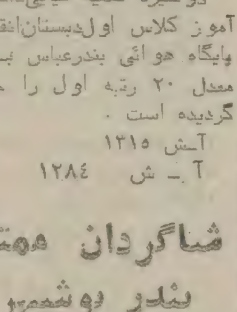 آموز کلاس اول دبستان
پایگاه هوائی بندرعباس
معدل ۲۰ رتبه اول را
گردیده است .
آـش ۱۳۱۵
آ ـ ش ۱۲۸٤
شاگردان
بندر بوشهر